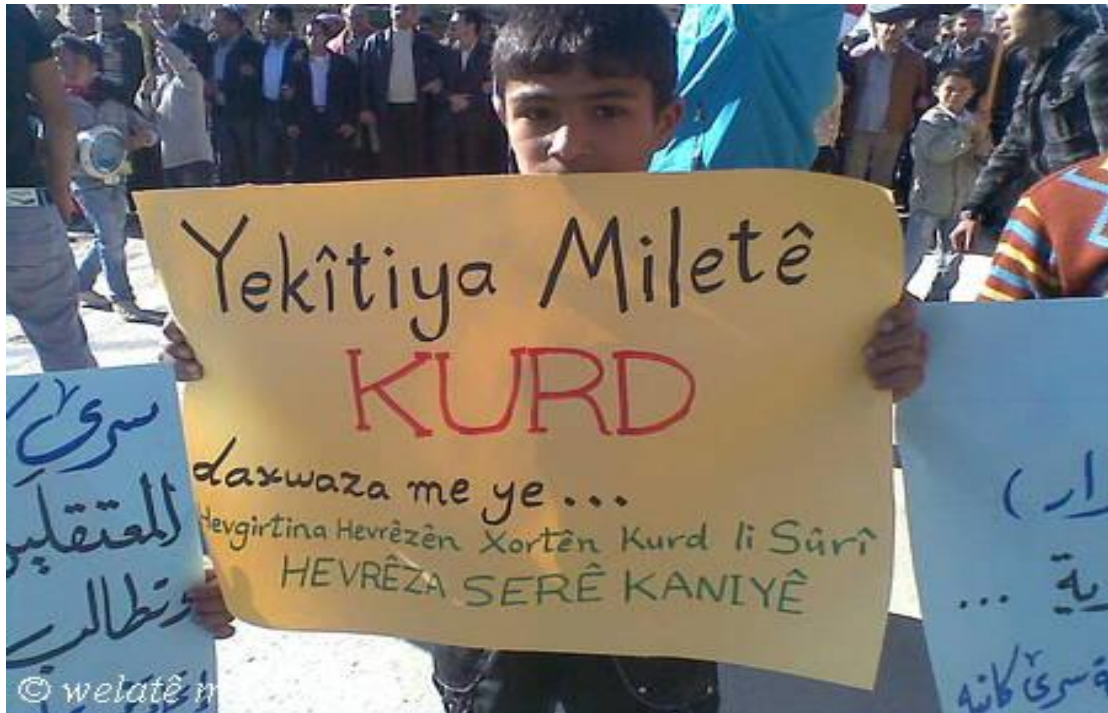 Yekîtiya Miletê
KURD
daxwaza me ye...
Hevgirtina Hevrêzên Xortên Kurd li Sûrî
HEVRÊZA SERÊ KANIYÊ
سرێ
المعتقلين
وتطالب
سرێ كانيه
© welatê